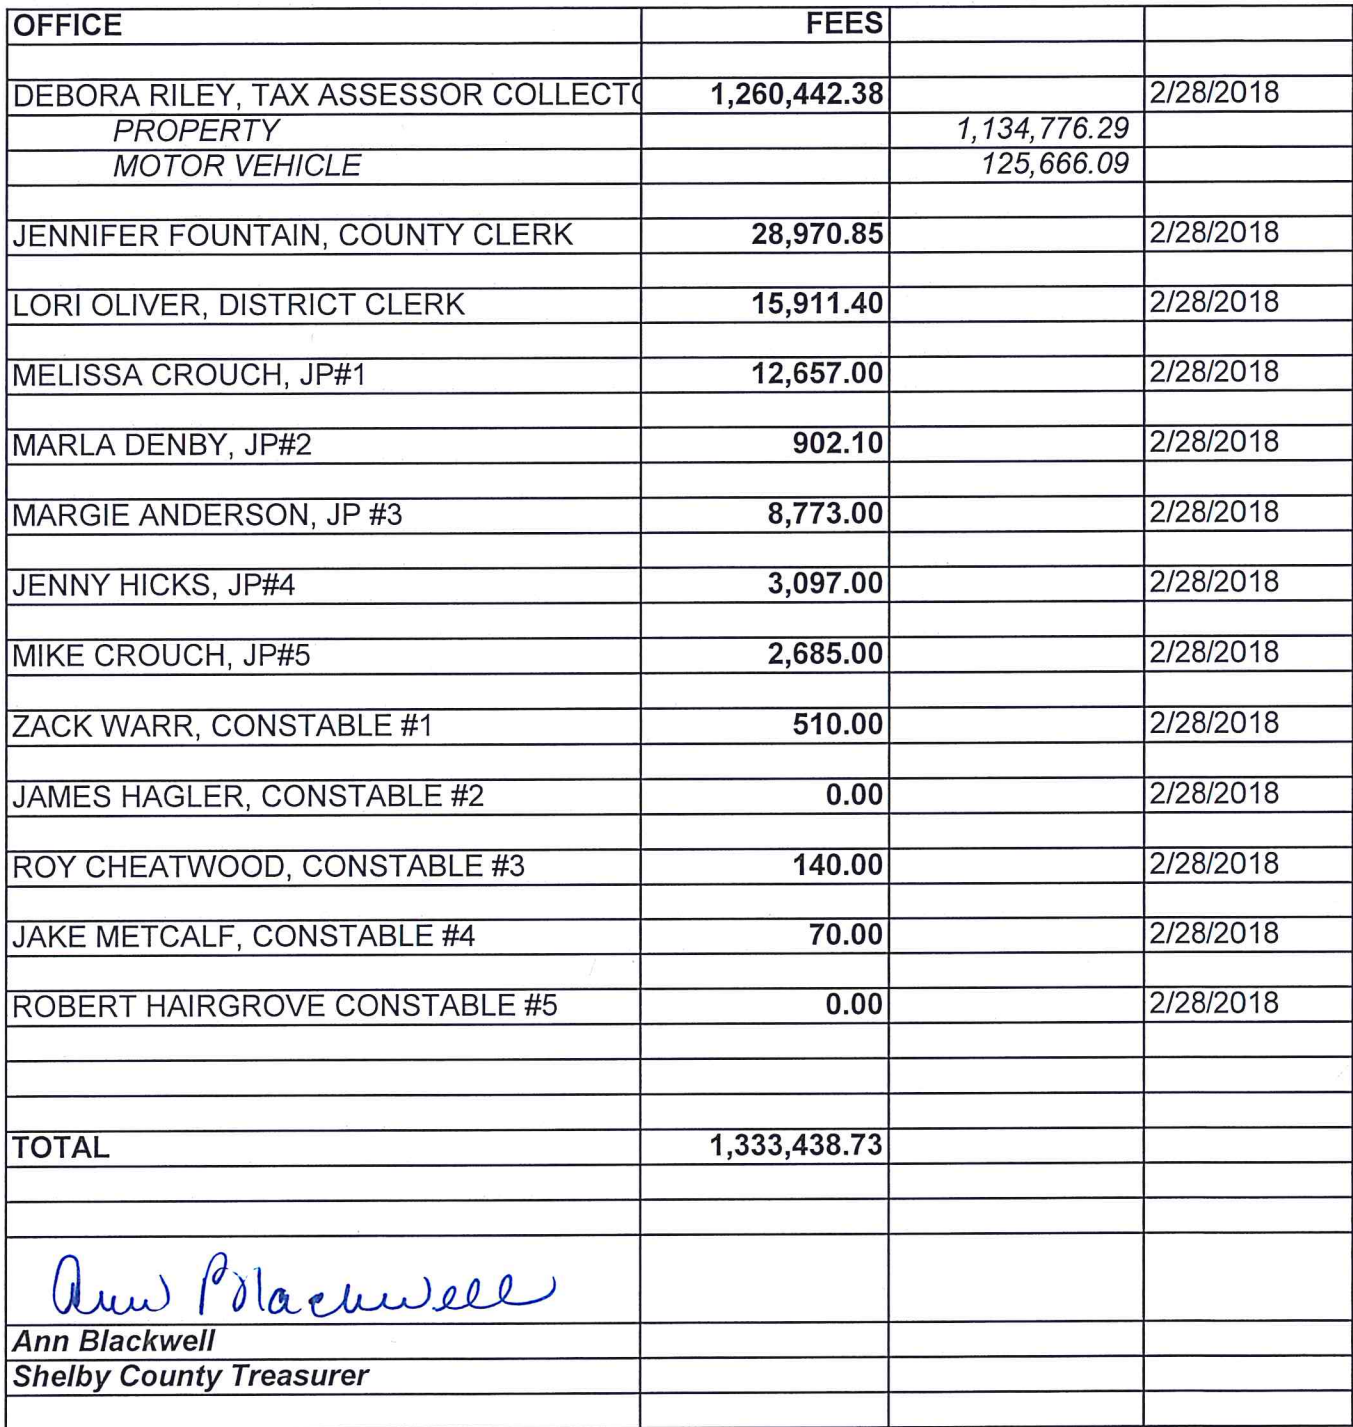 OFFICE FEES
DEBORA RILEY, TAX ASSESSOR COLLECTO 1,260,442.38 2/28/2018
PROPERTY 1,134,776.29
MOTOR VEHICLE 125,666.09
JENNIFER FOUNTAIN, COUNTY CLERK 28,970.85 2/28/2018
LORI OLIVER, DISTRICT CLERK 15,911.40 2/28/2018
MELISSA CROUCH, JP#1 12,657.00 2/28/2018
MARLA DENBY, JP#2 902.10 2/28/2018
MARGIE ANDERSON, JP #3 8,773.00 2/28/2018
JENNY HICKS, JP#4 3,097.00 2/28/2018
MIKE CROUCH, JP#5 2,685.00 2/28/2018
ZACK WARR, CONSTABLE #1 510.00 2/28/2018
JAMES HAGLER, CONSTABLE #2 0.00 2/28/2018
ROY CHEATWOOD, CONSTABLE #3 140.00 2/28/2018
JAKE METCALF, CONSTABLE #4 70.00 2/28/2018
ROBERT HAIRGROVE CONSTABLE #5 0.00 2/28/2018
TOTAL 1,333,438.73
Ann Blackwell
Ann Blackwell
Shelby County Treasurer